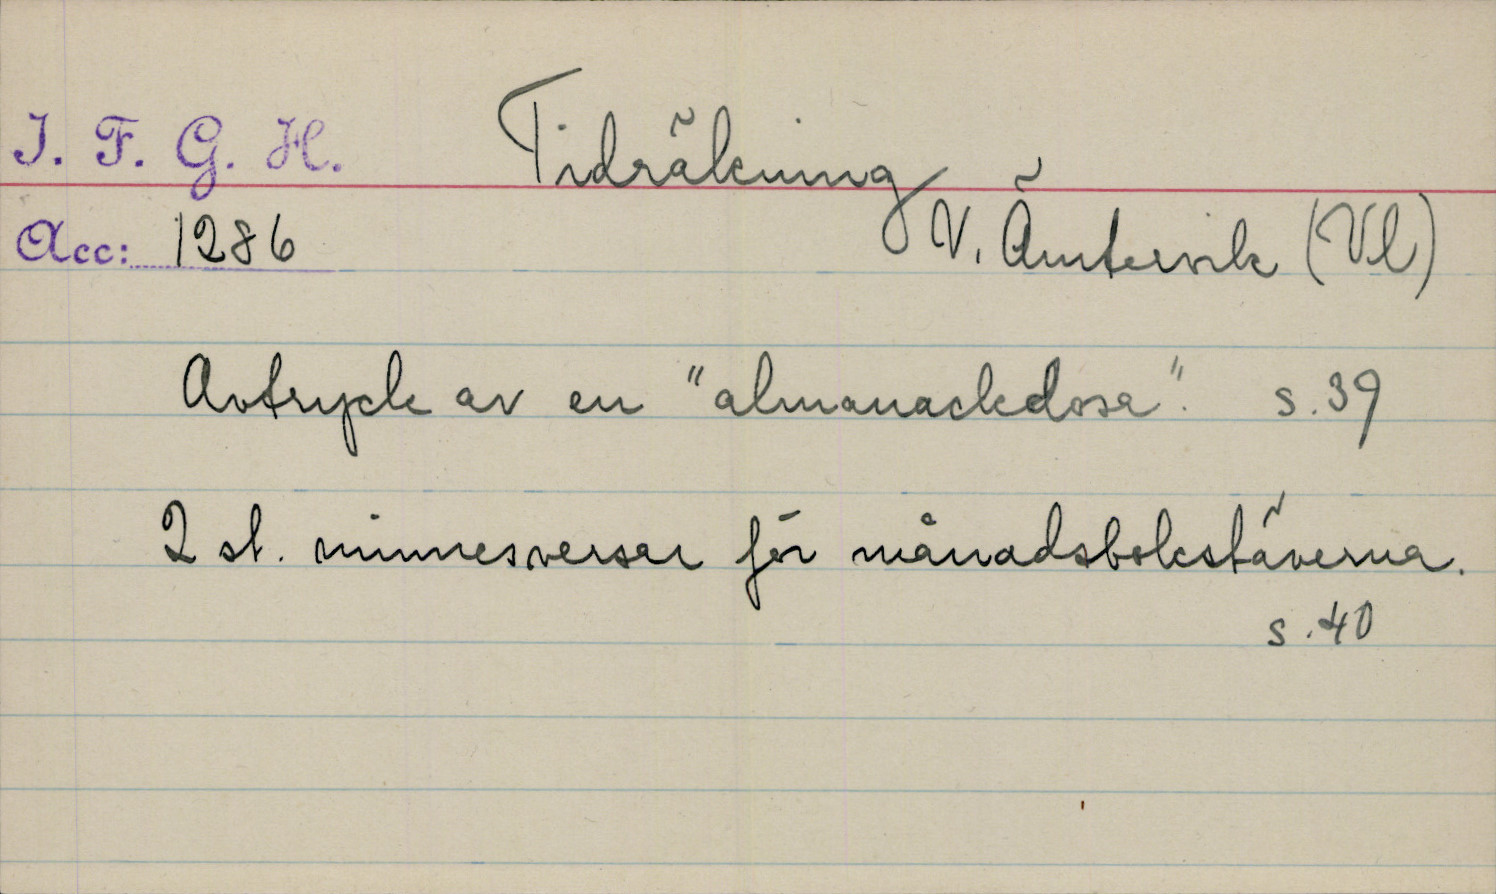 I. F. G. H. Tidräkning
Acc: 1286 V. Ämtervik (Vl)
Avtryck av en "almanackdosa". s. 39
2 st. minnesverser för månadsbokstäverna.
s. 40